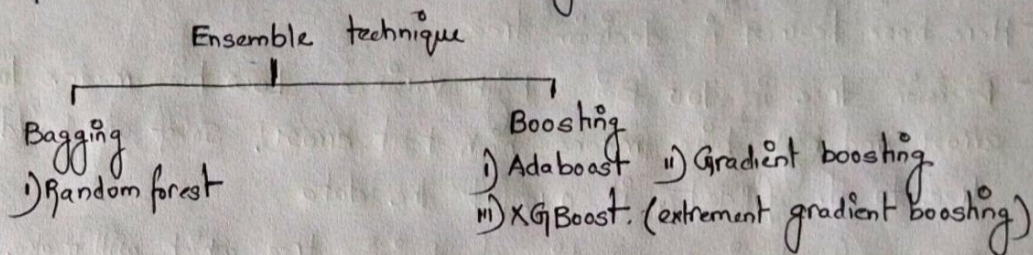 Ensemble technique
Bagging
i) Random forest
Boosting
i) Adaboost ii) Gradient boosting
iii) XGBoost. (extrement gradient boosting)